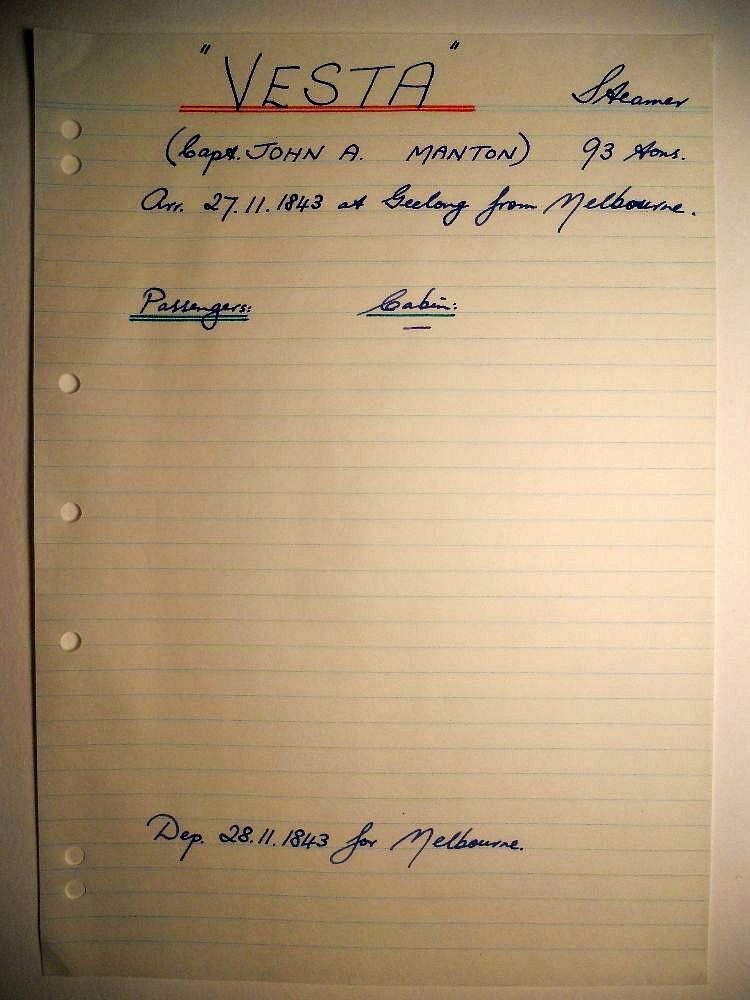 "VESTA" Steamer
(Capt. JOHN A. MANTON) 93 tons.
Arr. 27.11.1843 at Geelong from Melbourne.
Passengers: Cabin:
—
Dep. 28.11.1843 for Melbourne.